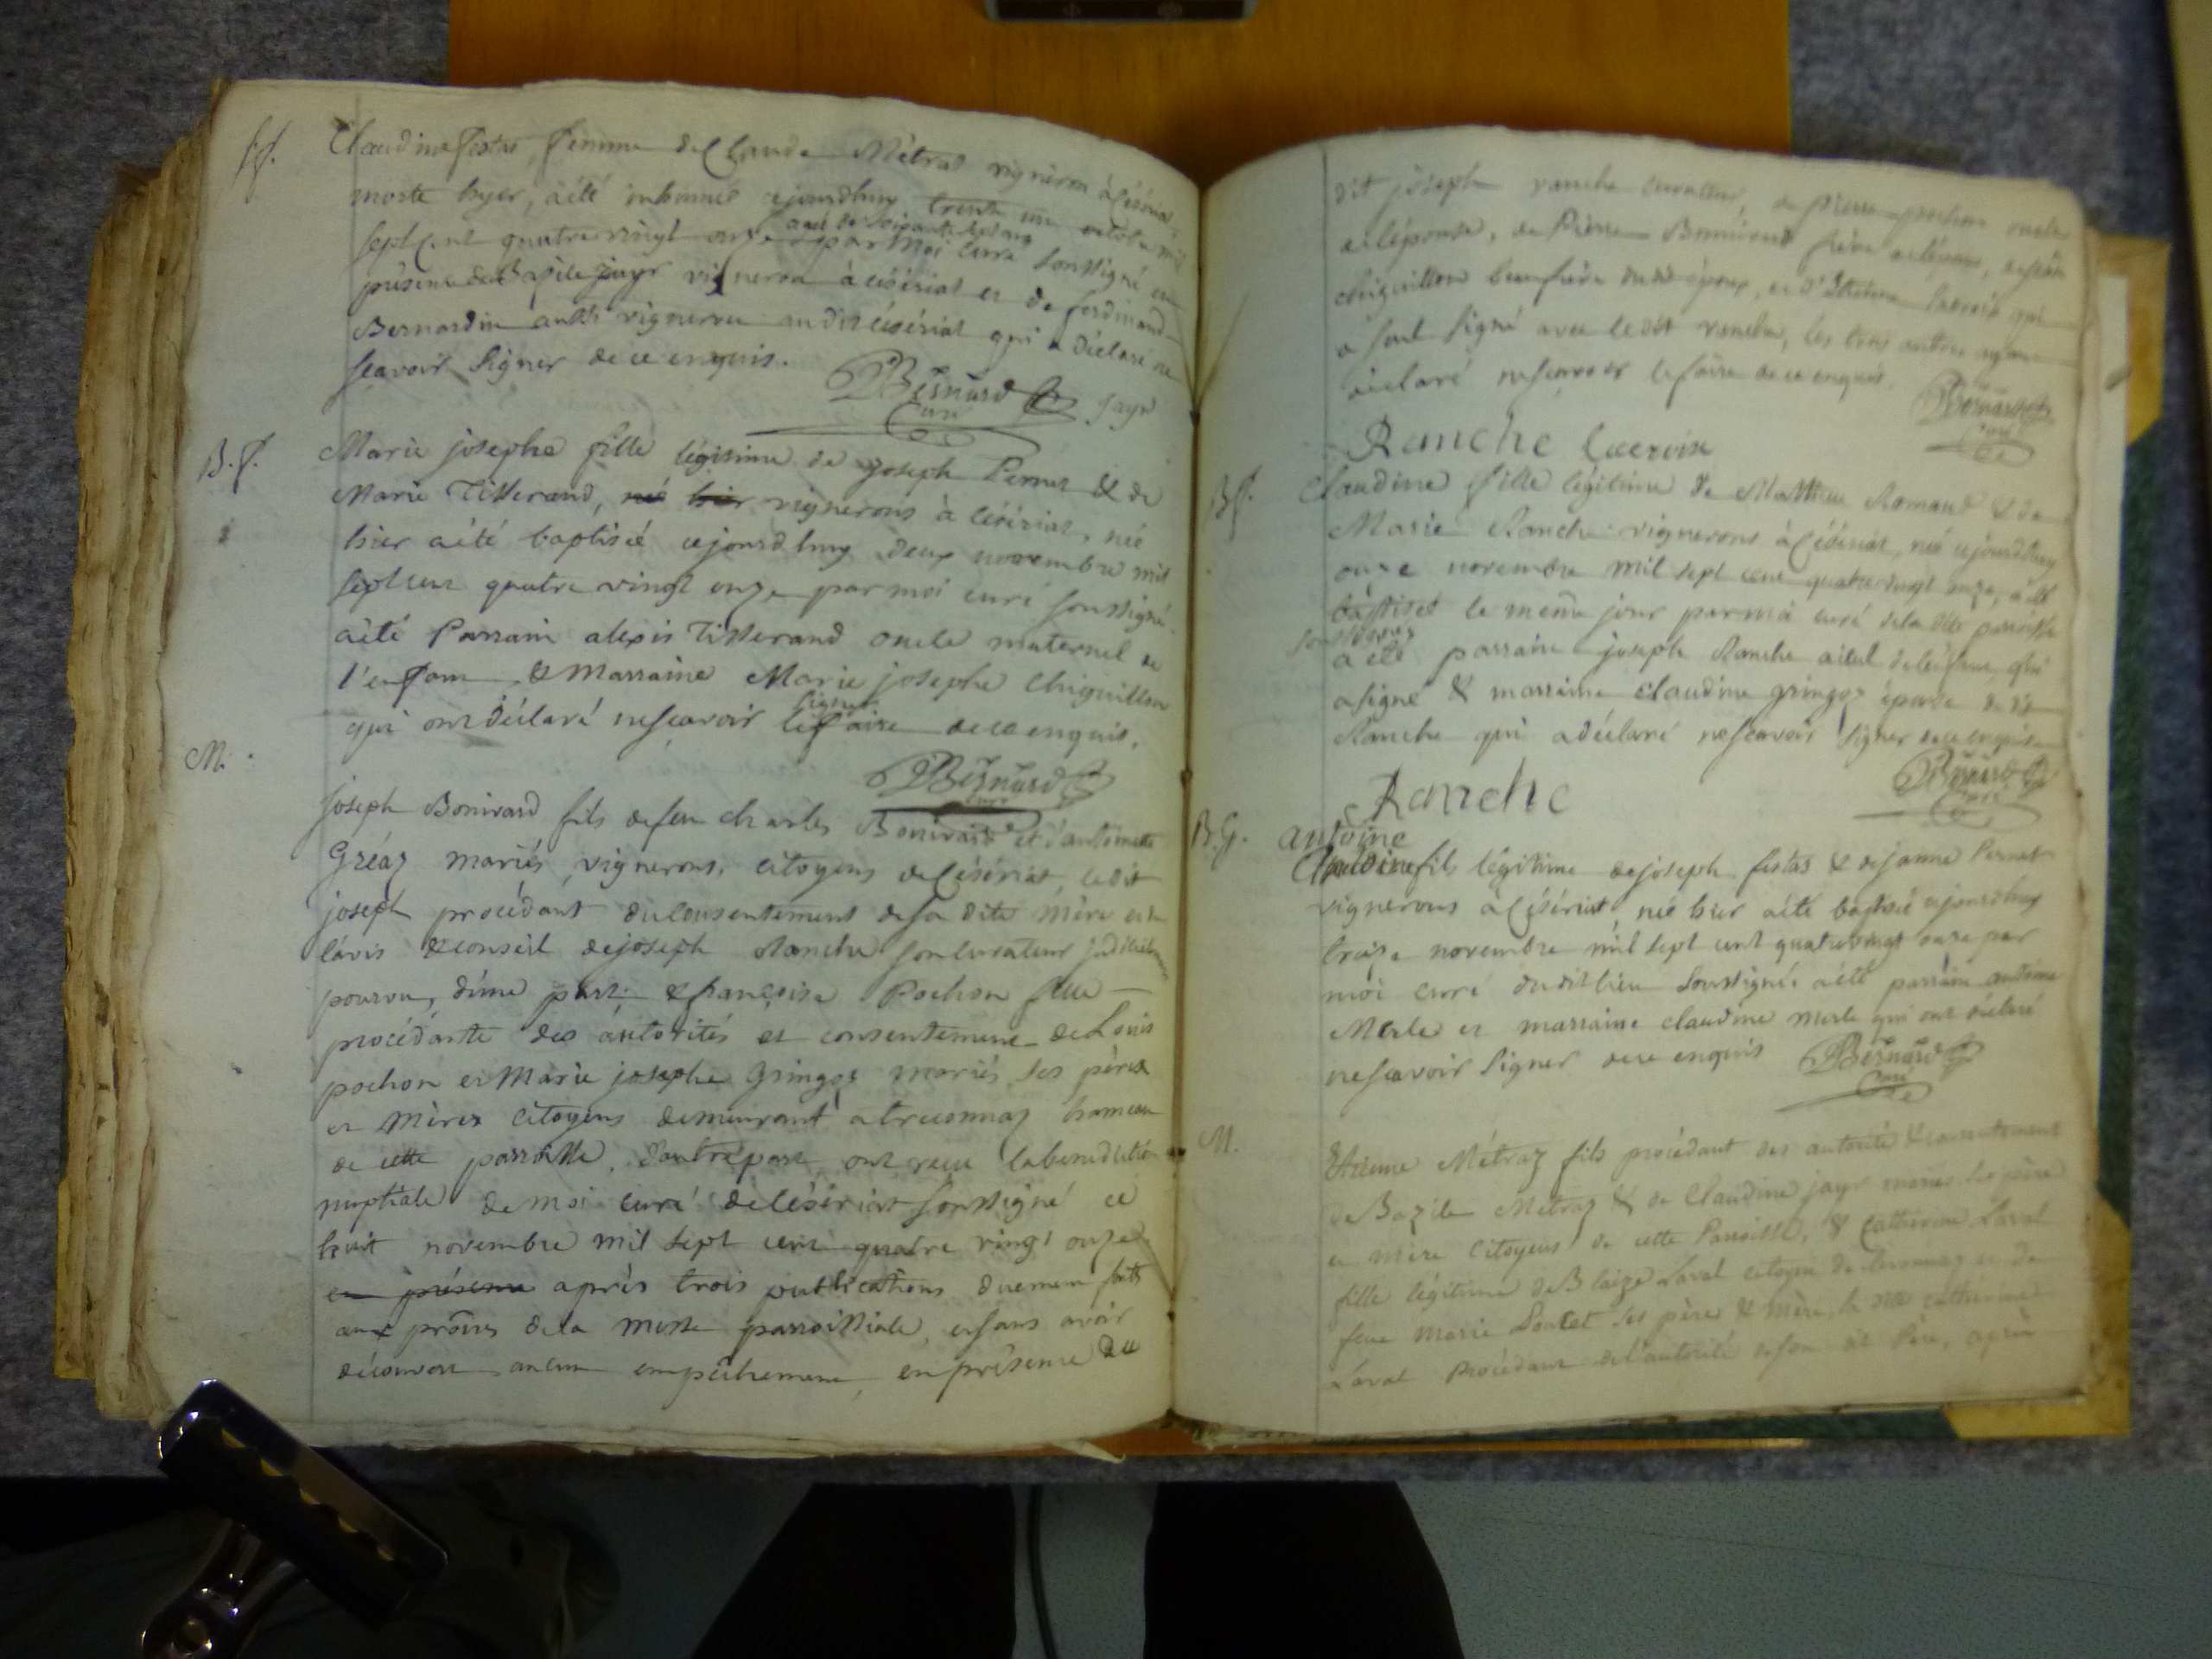 Claudine festas, femme de Claude Métras vigneron à Césériat,
morte hyer, a été inhumée cejourdhuy trente un octobre mil
agée de soixante sept ans
sept cent quatre vingt onze par moi curé soussigné en
présence de Bazile jayr vigneron à césériat et de ferdinand
Bernardin aussi vigneron audit césériat qui a déclaré ne
scavoir signer de ce enquis.
Bernard jayr
Curé
B.f. Marie josephe fille légitime de joseph Pernet & de
Marie Tisserand, né hier vignerons à césériat, née
hier a été baptisée cejourdhuy deux novembre mil
sept cent quatre vingt onze par moi curé soussigné.
a été Parrain alexis Tisserand oncle maternel de
l'enfant & marraine Marie josephe Chiguillon
signer
qui ont déclaré ne scavoir le faire de ce enquis.
Bernard
curé
M. joseph Bonivard fils de feu charles Bonivard et d'antoinette
Gréaz mariés, vignerons, citoyens de Césériat, ledit
joseph procédant du consentement de sa dite mère et de
l'avis & conseil de joseph Ranche son curateur judiciairement
pourvu, d'une part & françoise Pochon fille
procédante des autorités et consentement de Louis
pochon et Marie josephe Gringoz mariés ses pères
et mères citoyens demeurant à treconnaz hameau
de cette parroisse, d'autre part, ont reçu la bénédiction
nuptiale de moi curé de Césériat soussigné ce
huit novembre mil sept cent quatre vingt onze
en présence après trois publications duement faites
aux prônes de la messe parroissiale, et sans avoir
découvert aucun empêchement, en présence du
dit joseph ranche curateur, de pierre pochon oncle
de l'épouse, de Pierre Bonnivard frère de l'époux, de jean
chiguillon beaufrère dudit époux, et d'étienne Lacroix qui
a seul signé avec ledit ranche, les trois autres ayant
déclaré ne scavoir le faire de ce enquis.
Bernard
Curé
Ranche Lacroix
B.f. Claudine fille légitime de Mathieu Romand & de
Marie Ranche vignerons à Césériat, née cejourdhuy
onze novembre mil sept cent quatre vingt onze, a été
baptisée le meme jour par moi curé de la dite parroisse
soussigné
a été parrain joseph Ranche aieul de l'enfant, qui
a signé & marraine claudine gringoz épouse du dit
Ranche qui a déclaré ne scavoir signer de ce enquise
Bernard
Curé
Ranche
B.G. antoine
Claudine fils légitime de joseph festas & de janne Pernet
vignerons à Césériat, né hier a été baptisé cejourdhuy
treize novembre mil sept cent quatre vingt onze par
moi curé dudit lieu soussigné. a été parrain antoine
Merle et marraine claudine merle qui ont déclaré
ne scavoir signer de ce enquis Bernard
Curé
M. Etienne Métraz fils procédant des autorité & consentement
de Bazile Métraz & de Claudine jayr mariés ses père
et mère Citoyens de cette Parroisse, & Catherine Laval
fille légitime de Blaize Laval citoyen de et de
feue marie ses père & mère, la dite catherine
Laval Procédant de l'autorité de son dit Père, après